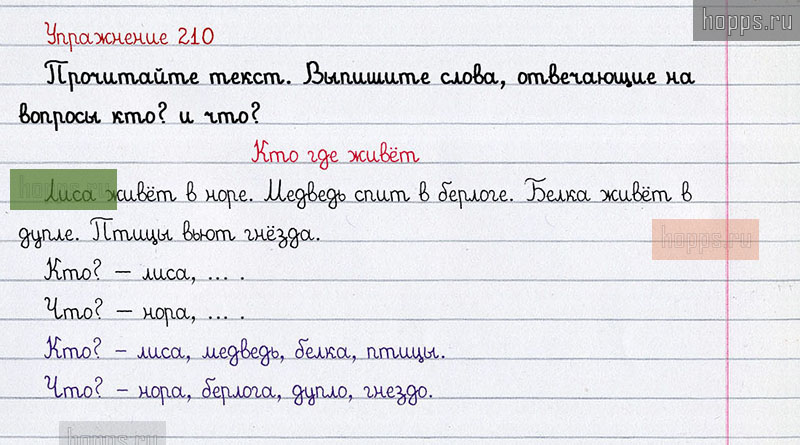 hopps.ru
Упражнение 210
Прочитайте текст. Выпишите слова, отвечающие на
вопросы кто? и что?
Кто где живёт
Лиса живёт в норе. Медведь спит в берлоге. Белка живёт в
hopps.ru
дупле. Птицы вьют гнёзда.
hopps.ru
Кто? – лиса, ... .
Что? – нора, ... .
Кто? – лиса, медведь, белка, птицы.
Что? – нора, берлога, дупло, гнездо.
hopps.ru